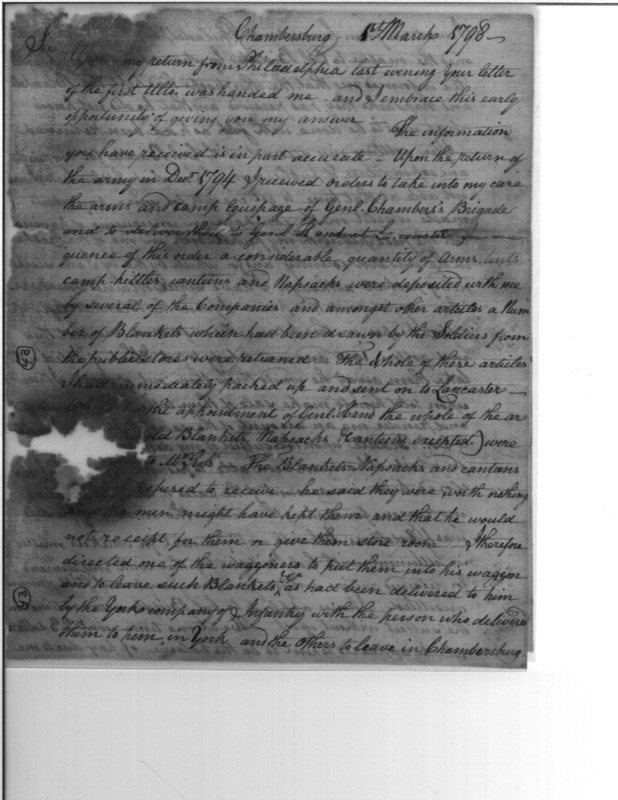 Chambersburg 1st March 1798 —
Sir
Upon my return from Philadelphia last evening your letter
of the first Ulto. was handed me - and I embrace this early
opportunity of giving you my answer — The information
you have received is in part accurate - Upon the return of
the army in Decr. 1794 I received orders to take into my care
the arms and camp Equipage of Genl. Chambers's Brigade
and to deliver them to Genl. at
quence of this order a considerable quantity of Arms, tents
camp kettles, cantiens and Napsacks were deposited with me
by several of the Companies and amongst other articles a Num
ber of Blankets which had been drawn by the Soldiers from
the public stores were returned - The whole of these articles
I had immediately packed up and sent on to Lancaster —
the appointment of Genl. the whole of the ar
Blankets, Napsacks Cantiens excepted) were
Mr. Ross - The Blankets Napsacks and cantiens
refused to receive - he said they were worth nothing
and the men might have kept them and that he would
not receipt for them or give them store room - I therefore
directed one of the waggoners to put them into his waggon
and to leave such Blankets &c. as had been delivered to him
by the York company of Infantry with the person who delivered
them to him in York and the others to leave in Chambersburg